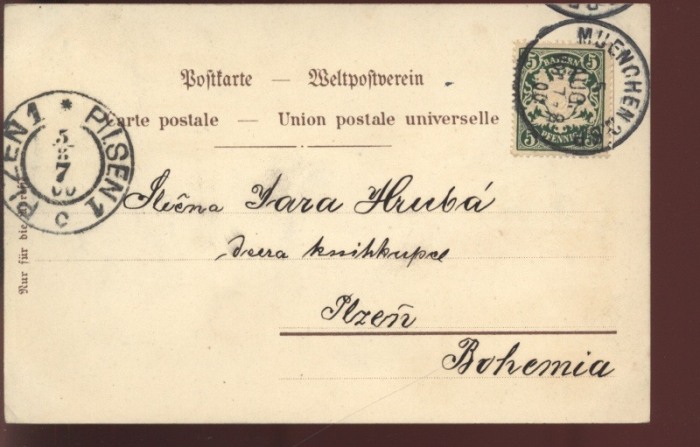 Postkarte — Weltpostverein
Carte postale — Union postale universelle
BAYERN
5 5
5 PFENNIG 5
MUENCHEN 2
PLZEN 1 * PILSEN 1
5
8
7
00
c
Slečna Jara Hrubá
dcera knihkupce
Plzeň
Bohemia
Nur für die